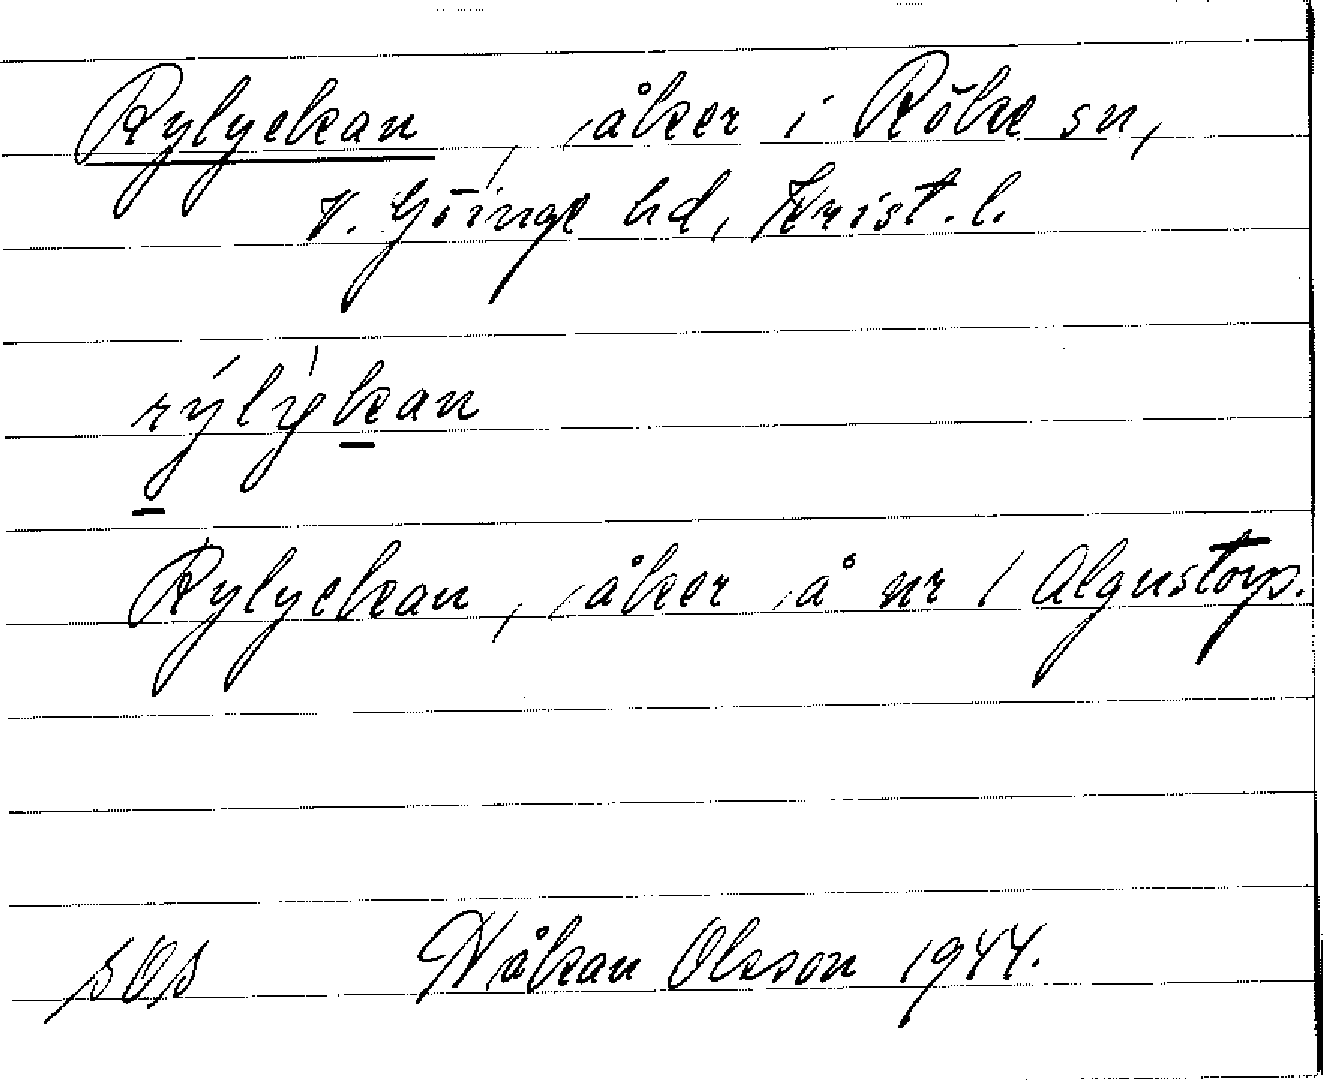 Rylyckan, åker i Röke sn,
V. Göinge hd, Krist. l.
rýlỳkan
Rylyckan, åker å nr 1 Algustorp.
sOs Håkan Olsson 1944.